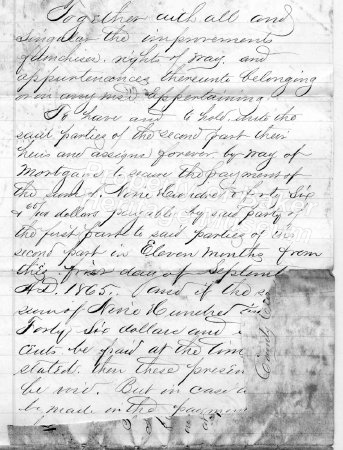 Together with all and
singular the improvements
rights of way and
appurtenances thereunto belonging
or in any wise appertaining.
To have and to hold unto the
said parties of the second part their
heirs and assigns forever by way of
Mortgage to secure the payment of
the sum of Nine Hundred & forty Six
dollars payable by said party of
the first part to said parties of the
second part in Eleven months from
this first day of Septem
A.D. 1865. And if the s
sum of Nine Hundred and
Forty Six dollars and
cents be paid at the tim
stated. then these presen
be void. But in case
be made in the paymen
County